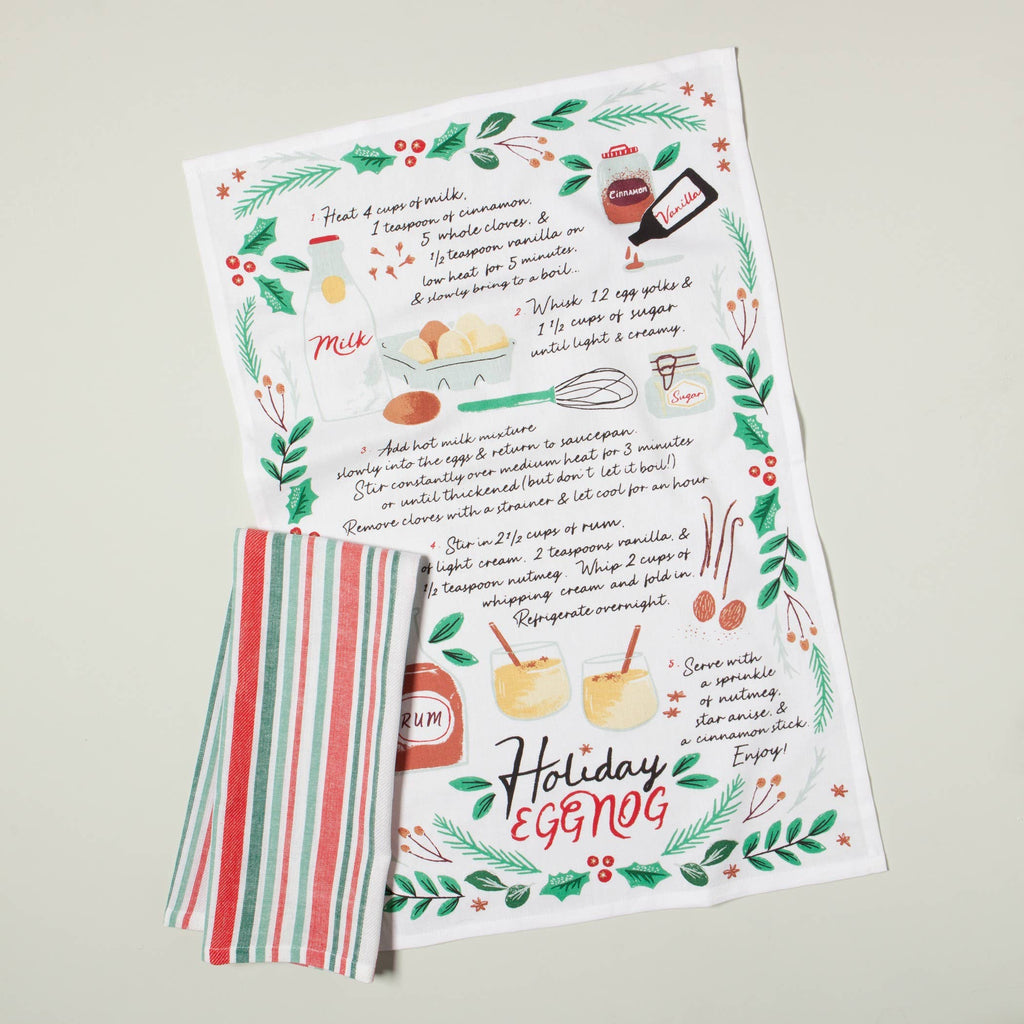 1. Heat 4 cups of milk,
1 teaspoon of cinnamon,
5 whole cloves, &
1/2 teaspoon vanilla on
low heat for 5 minutes,
& slowly bring to a boil...
Cinnamon
Vanilla
2. Whisk 12 egg yolks &
1 1/2 cups of sugar
until light & creamy.
Milk
Sugar
3. Add hot milk mixture
slowly into the eggs & return to saucepan.
Stir constantly over medium heat for 3 minutes
or until thickened (but don't let it boil!)
Remove cloves with a strainer & let cool for an hour
4. Stir in 2 1/2 cups of rum,
of light cream, 2 teaspoons vanilla, &
1/2 teaspoon nutmeg. Whip 2 cups of
whipping cream and fold in.
Refrigerate overnight.
RUM
5. Serve with
a sprinkle
of nutmeg,
star anise, &
a cinnamon stick.
Enjoy!
Holiday
EGGNOG